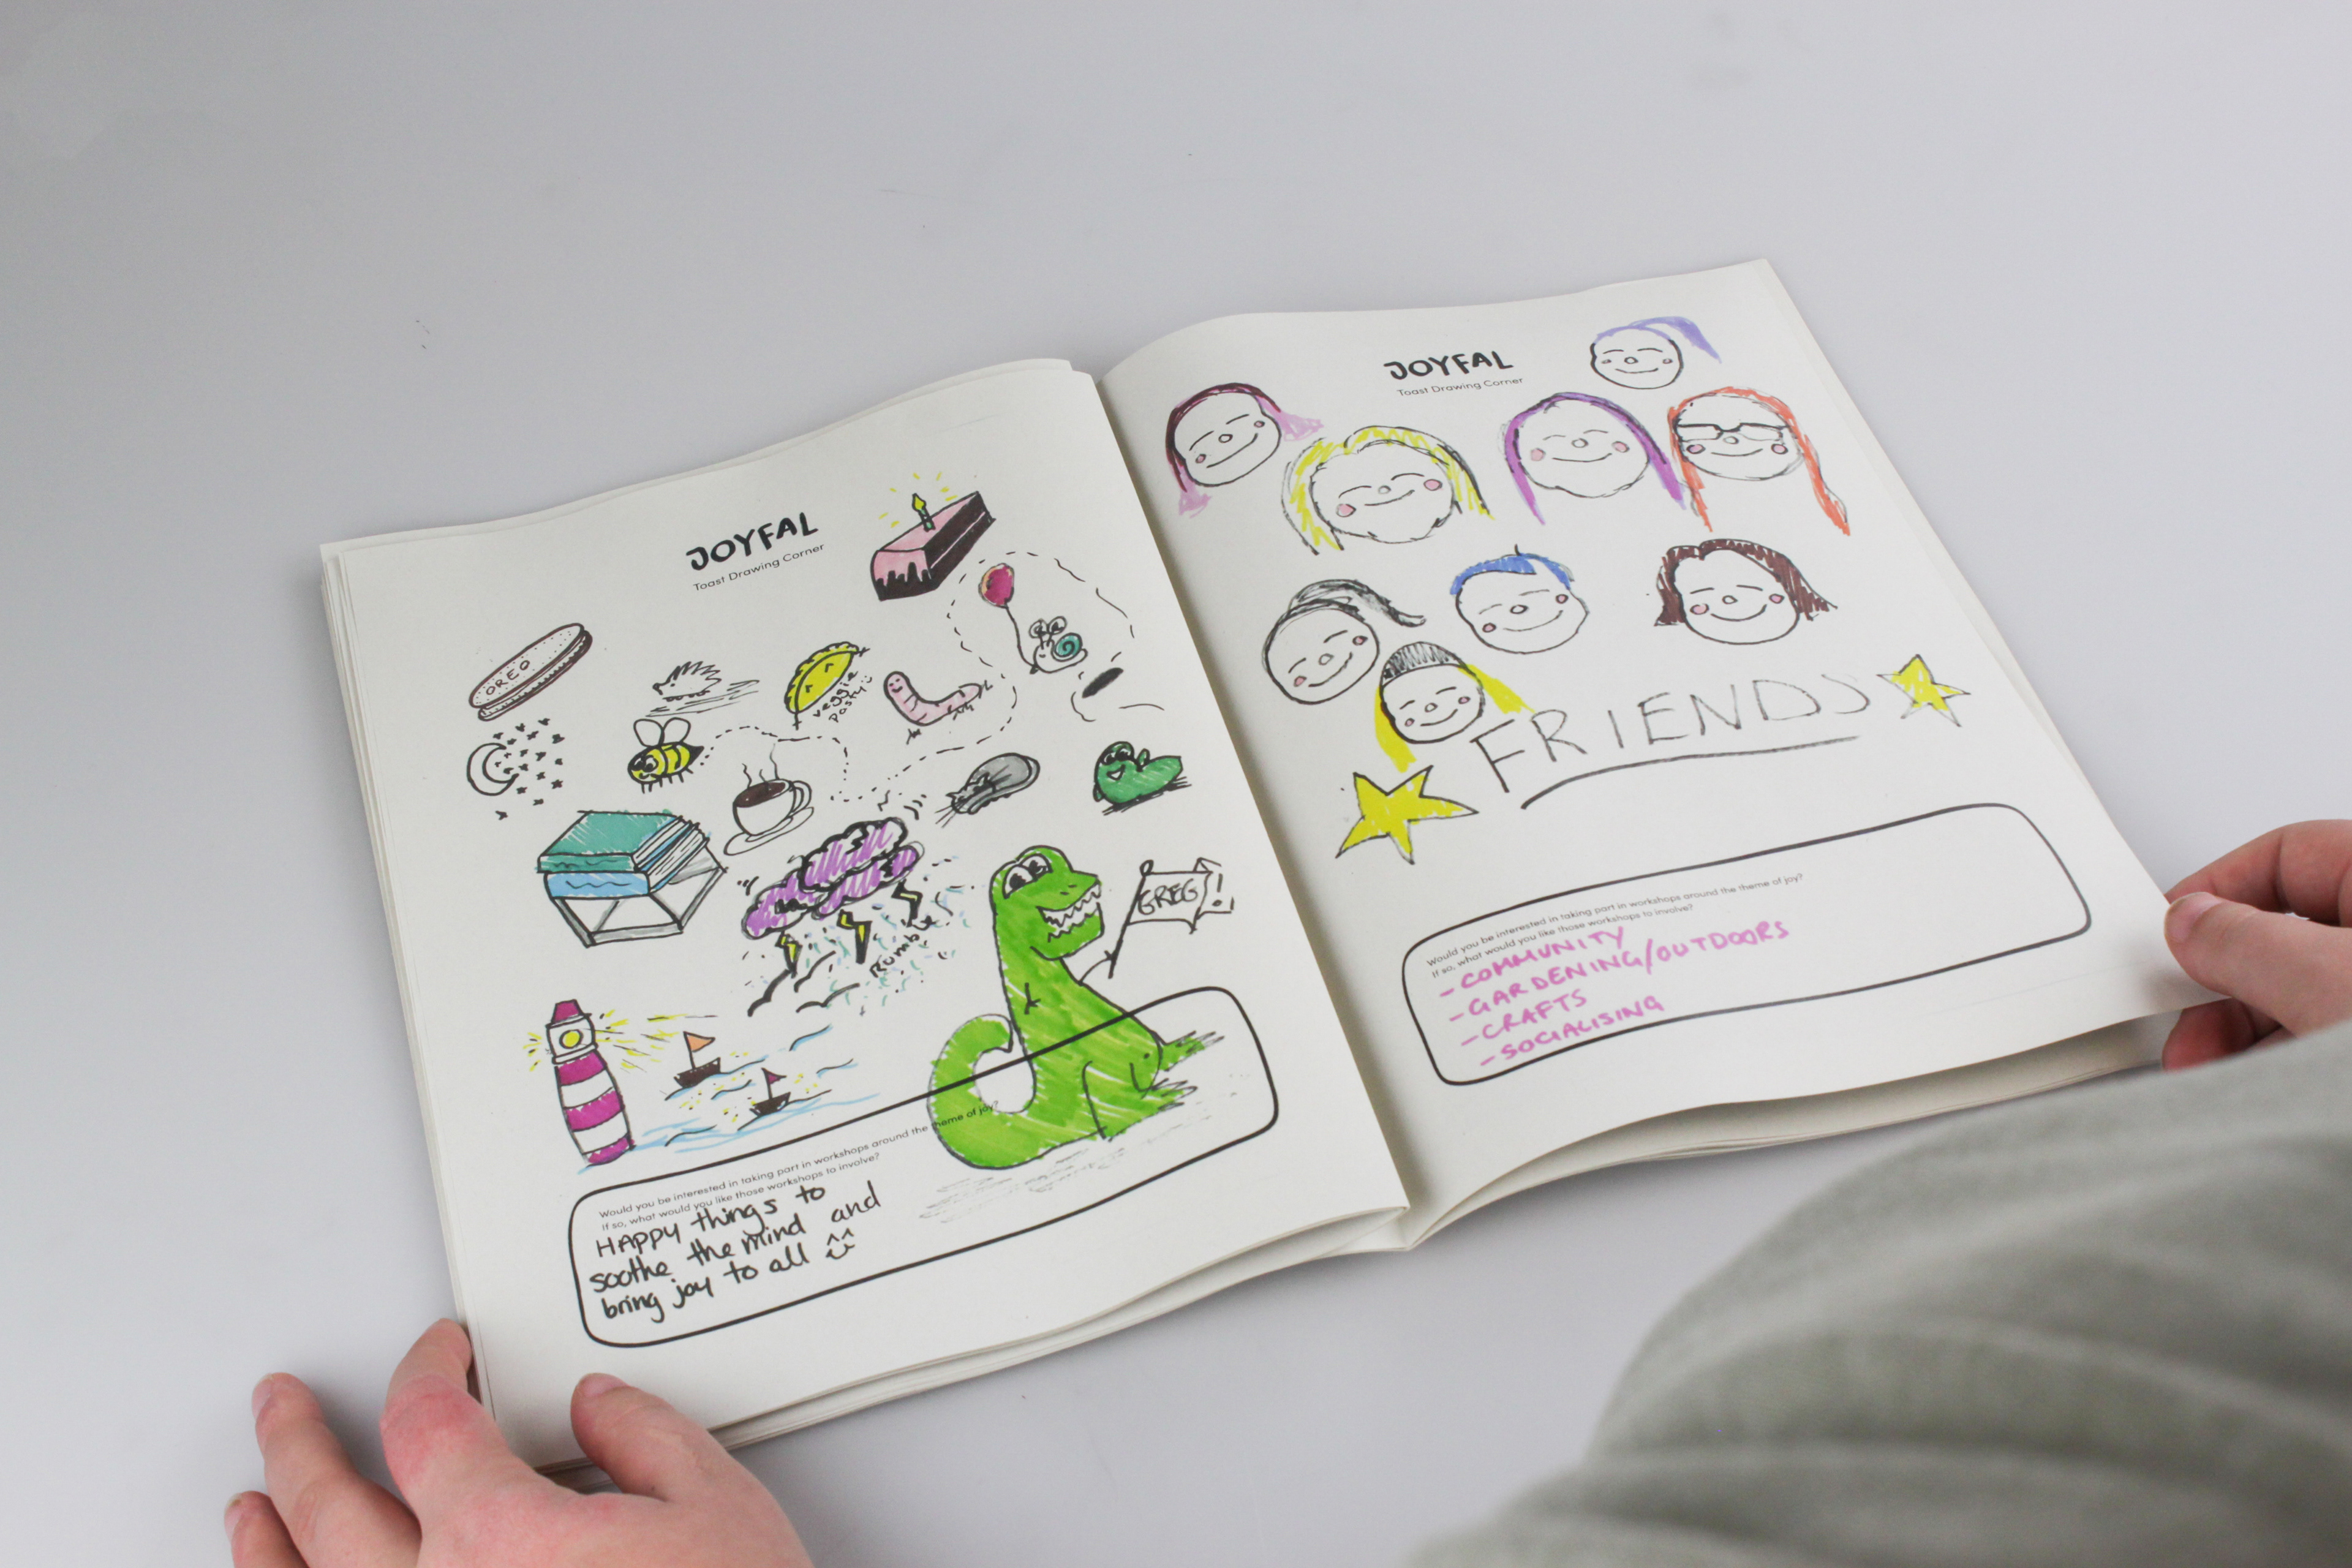 JOYFAL
Toast Drawing Corner
OREO
veggie
pasty
Rumble
GREG!
Would you be interested in taking part in workshops around the theme of joy?
If so, what would you like those workshops to involve?
HAPPY things to
soothe the mind and
bring joy to all
JOYFAL
Toast Drawing Corner
FRIENDS
Would you be interested in taking part in workshops around the theme of joy?
If so, what would you like those workshops to involve?
- COMMUNITY
- GARDENING/OUTDOORS
- CRAFTS
- SOCIALISING